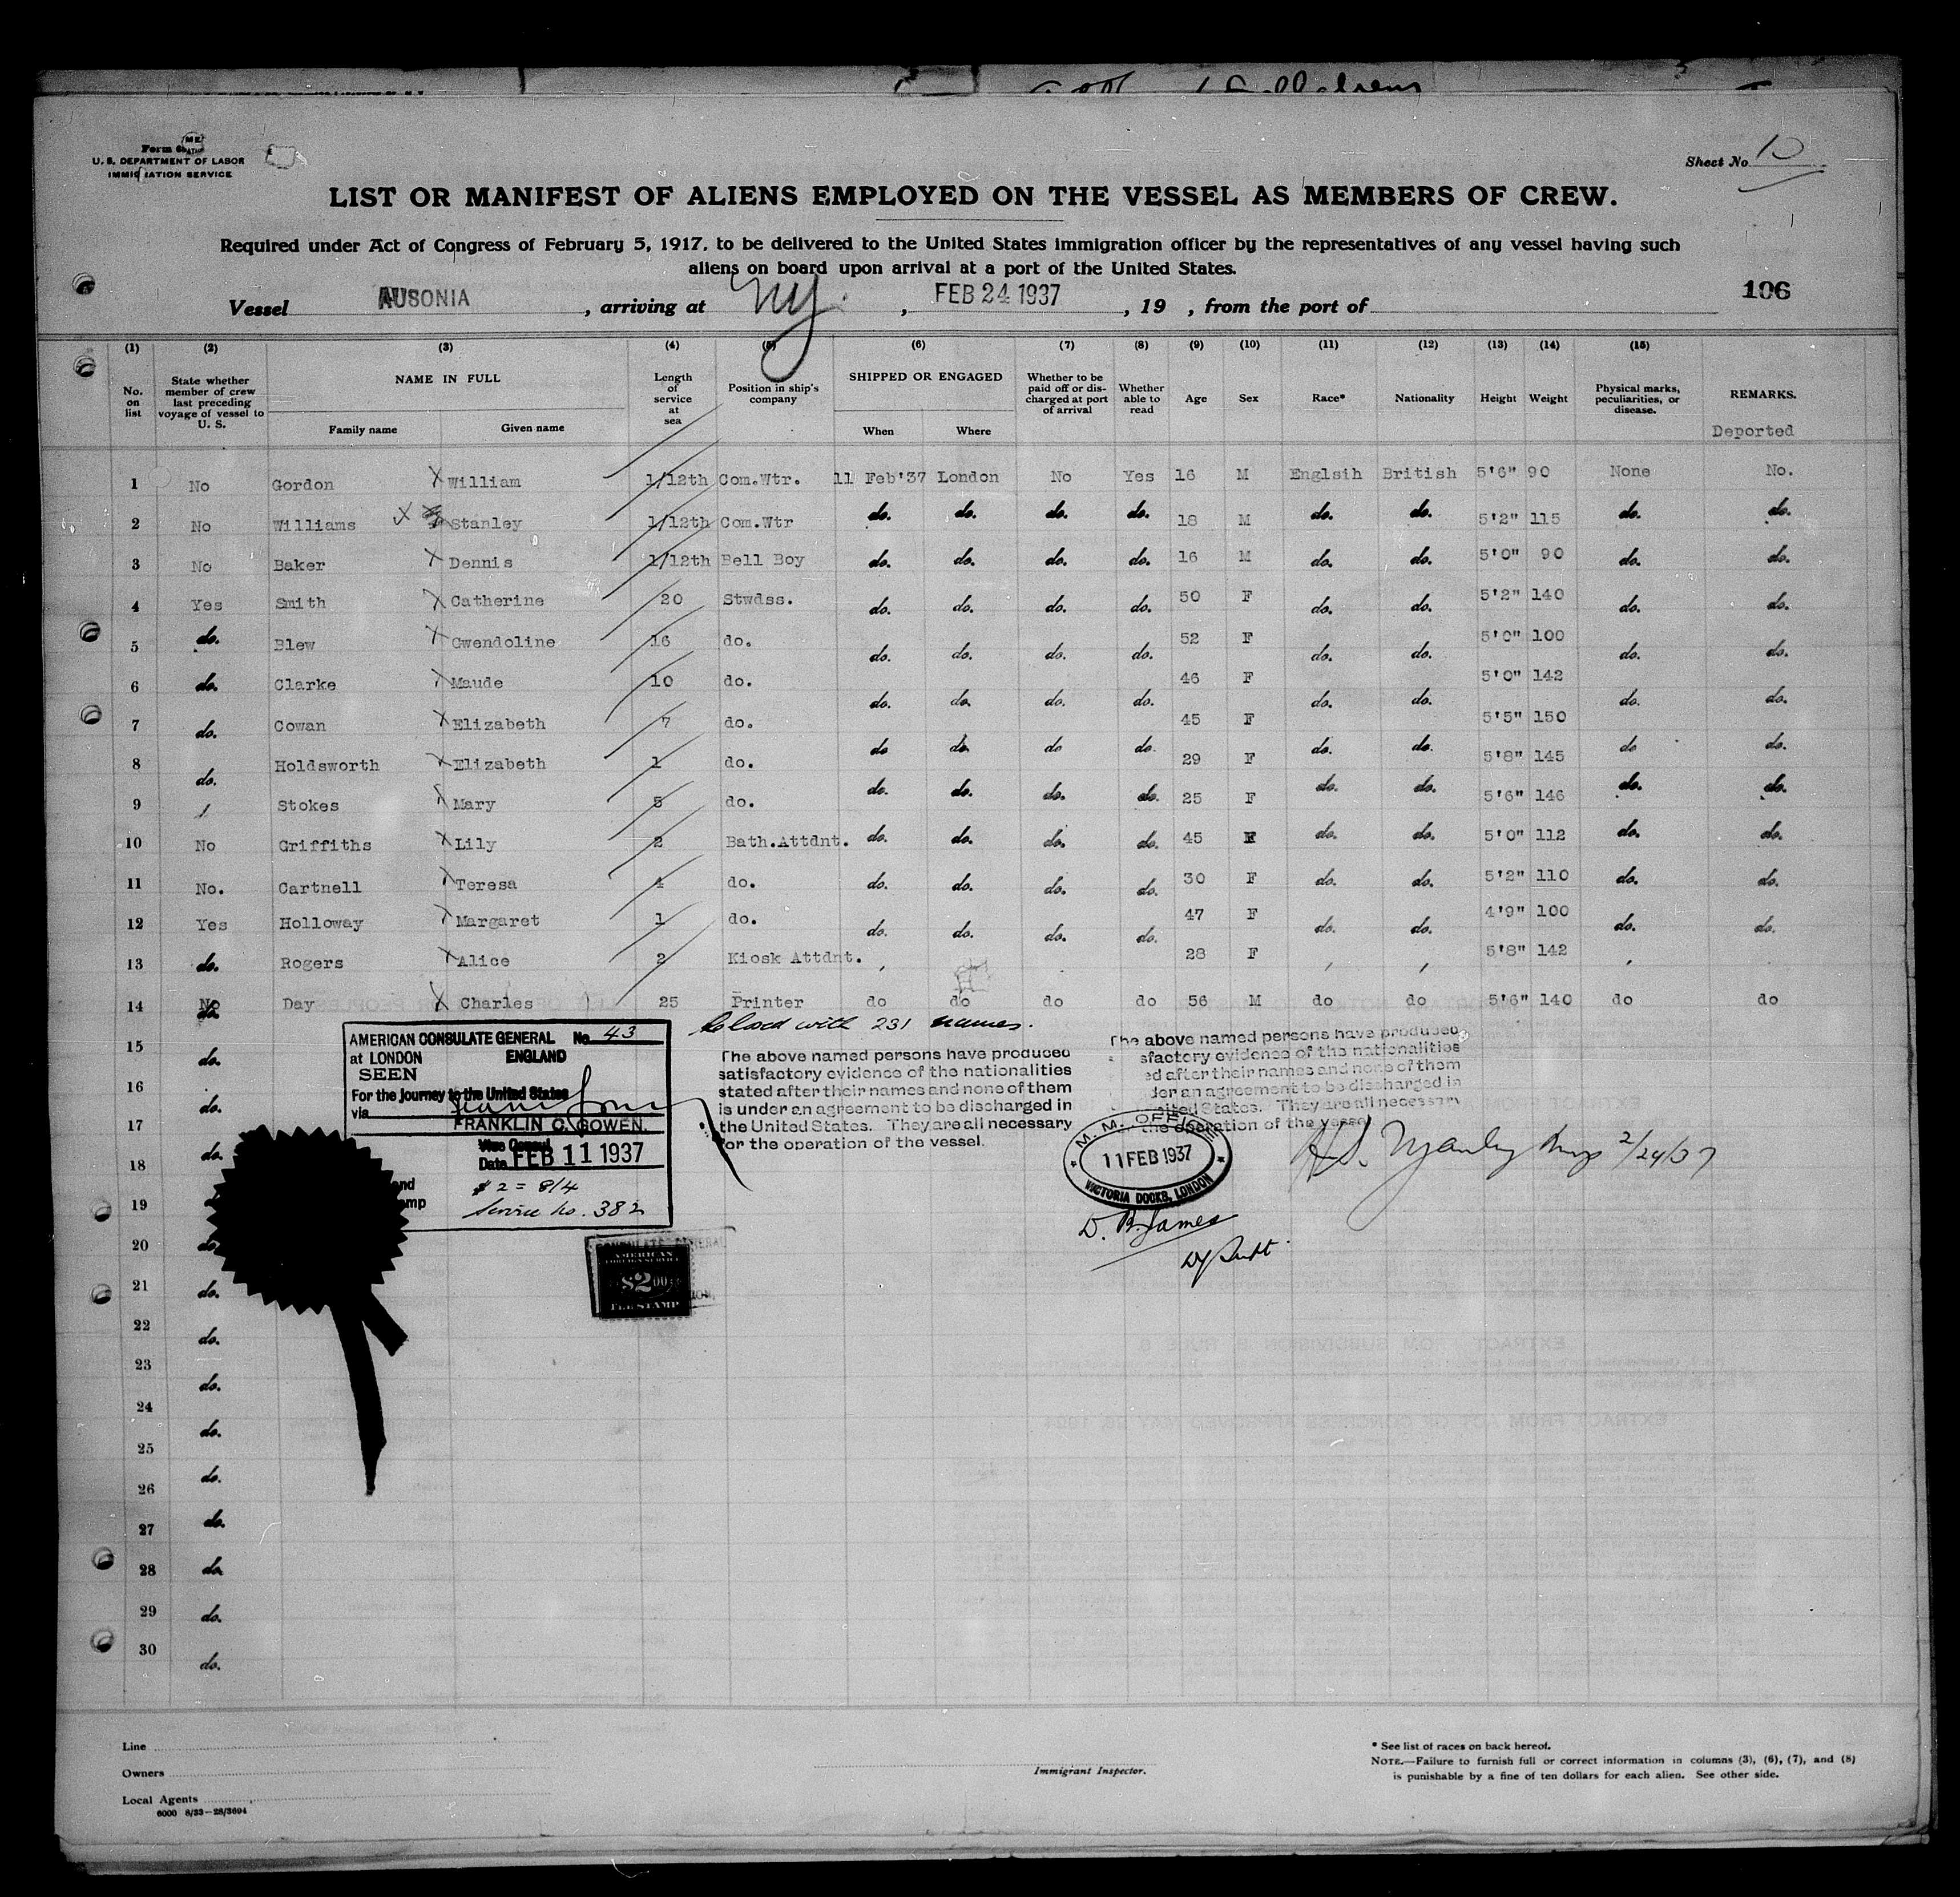 Form 6
U. S. DEPARTMENT OF LABOR
IMMIGRATION SERVICE
Sheet No. 10
LIST OR MANIFEST OF ALIENS EMPLOYED ON THE VESSEL AS MEMBERS OF CREW.
Required under Act of Congress of February 5, 1917, to be delivered to the United States immigration officer by the representatives of any vessel having such
aliens on board upon arrival at a port of the United States.
106
Vessel AUSONIA , arriving at NY. , FEB 24 1937 , 19 , from the port of
(1) (2) (3) (4) (5) (6) (7) (8) (9) (10) (11) (12) (13) (14) (15)
No. on list State whether member of crew last preceding voyage of vessel to U. S. NAME IN FULL Family name Given name Length of service at sea Position in ship's company SHIPPED OR ENGAGED When Where Whether to be paid off or discharged at port of arrival Whether able to read Age Sex Race* Nationality Height Weight Physical marks, peculiarities, or disease. REMARKS.
Deported
1 No Gordon X William 1/12th Com.Wtr. 11 Feb'37 London No Yes 16 M Englsih British 5'6" 90 None No.
2 No Williams X Stanley 1/12th Com.Wtr do. do. do. do. 18 M do. do. 5'2" 115 do. do.
3 No Baker X Dennis 1/12th Bell Boy do. do. do. do. 16 M do. do. 5'0" 90 do. do.
4 Yes Smith X Catherine 20 Stwdss. do. do. do. do. 50 F do. do. 5'2" 140 do. do.
5 do. Blew X Gwendoline 16 do. do. do. do. do. 52 F do. do. 5'0" 100 do. do.
6 do. Clarke X Maude 10 do. do. do. do. do. 46 F do. do. 5'0" 142 do. do.
7 do. Cowan X Elizabeth 7 do. do do. do do. 45 F do. do. 5'5" 150 do do.
8 do. Holdsworth X Elizabeth 1 do. do. do. do. do. 29 F do. do. 5'8" 145 do. do.
9 Stokes X Mary 5 do. do. do. do. do. 25 F do. do. 5'6" 146 do. do.
10 No Griffiths X Lily 2 Bath.Attdnt. do. do. do. do. 45 F do. do. 5'0" 112 do. do.
11 No. Cartnell X Teresa 4 do. do. do. do. do. 30 F do. do. 5'2" 110 do. do.
12 Yes Holloway X Margaret 1 do. 47 F 4'9" 100
13 do. Rogers X Alice 2 Kiosk Attdnt. 28 F 5'8" 142
14 No Day X Charles 25 Printer do do do do 56 M do do 5'6" 140 do do
Closed with 231 names.
15 do.
16 do.
17 do.
18
19
20 do.
21 do.
22 do.
23 do.
24 do.
25 do.
26 do.
27 do.
28 do.
29 do.
30 do.
AMERICAN CONSULATE GENERAL No. 43
at LONDON ENGLAND
SEEN
For the journey to the United States
via
FRANKLIN C. GOWEN.
Vice Consul
Date FEB 11 1937
$2 = 8/4
Service No. 382
AMERICAN
FOREIGN SERVICE
$2.00
FEE STAMP
The above named persons have produced
satisfactory evidence of the nationalities
stated after their names and none of them
is under an agreement to be discharged in
the United States. They are all necessary
for the operation of the vessel.
The above named persons have produced
sfactory evidence of the nationalities
ed after their names and none of them
der an agreement to be discharged in
ited States. They are all necessary
the operation of the vessel
M. M. OFFICE
11 FEB 1937
VICTORIA DOCKS, LONDON
D. B. James
Dy Supt.
2/24/37
Line
Owners
Local Agents
6000 8/33—28/3694
Immigrant Inspector.
* See list of races on back hereof.
NOTE.—Failure to furnish full or correct information in columns (3), (6), (7), and (8)
is punishable by a fine of ten dollars for each alien. See other side.